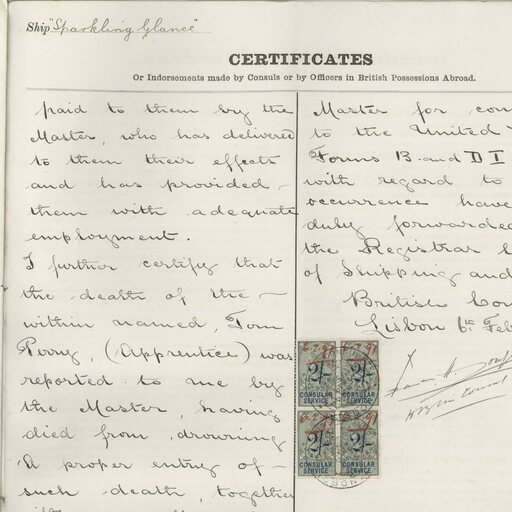 Ship "Sparkling Glance"
CERTIFICATES
Or Indorsements made by Consuls or by Officers in British Possessions Abroad.
paid to them by the
Master, who has delivered
to them their effects
and has provided
them with adequate
employment.
I further certify that
the death of the
within named, Tom
Perry, (Apprentice) was
reported to me by
the Master having
died from drowning
A proper entry of
such death, together
Master for con
to the United
Forms B and D I
with regard to
occurrence have
duly forwarded
the Registrar
of Shipping and
British Con
Lisbon 6th Feb
6.2.97 6.2.97
2/- 2/-
CONSULAR SERVICE CONSULAR SERVICE
6.2.97 6.2.97
2/- 2/-
CONSULAR SERVICE CONSULAR SERVICE